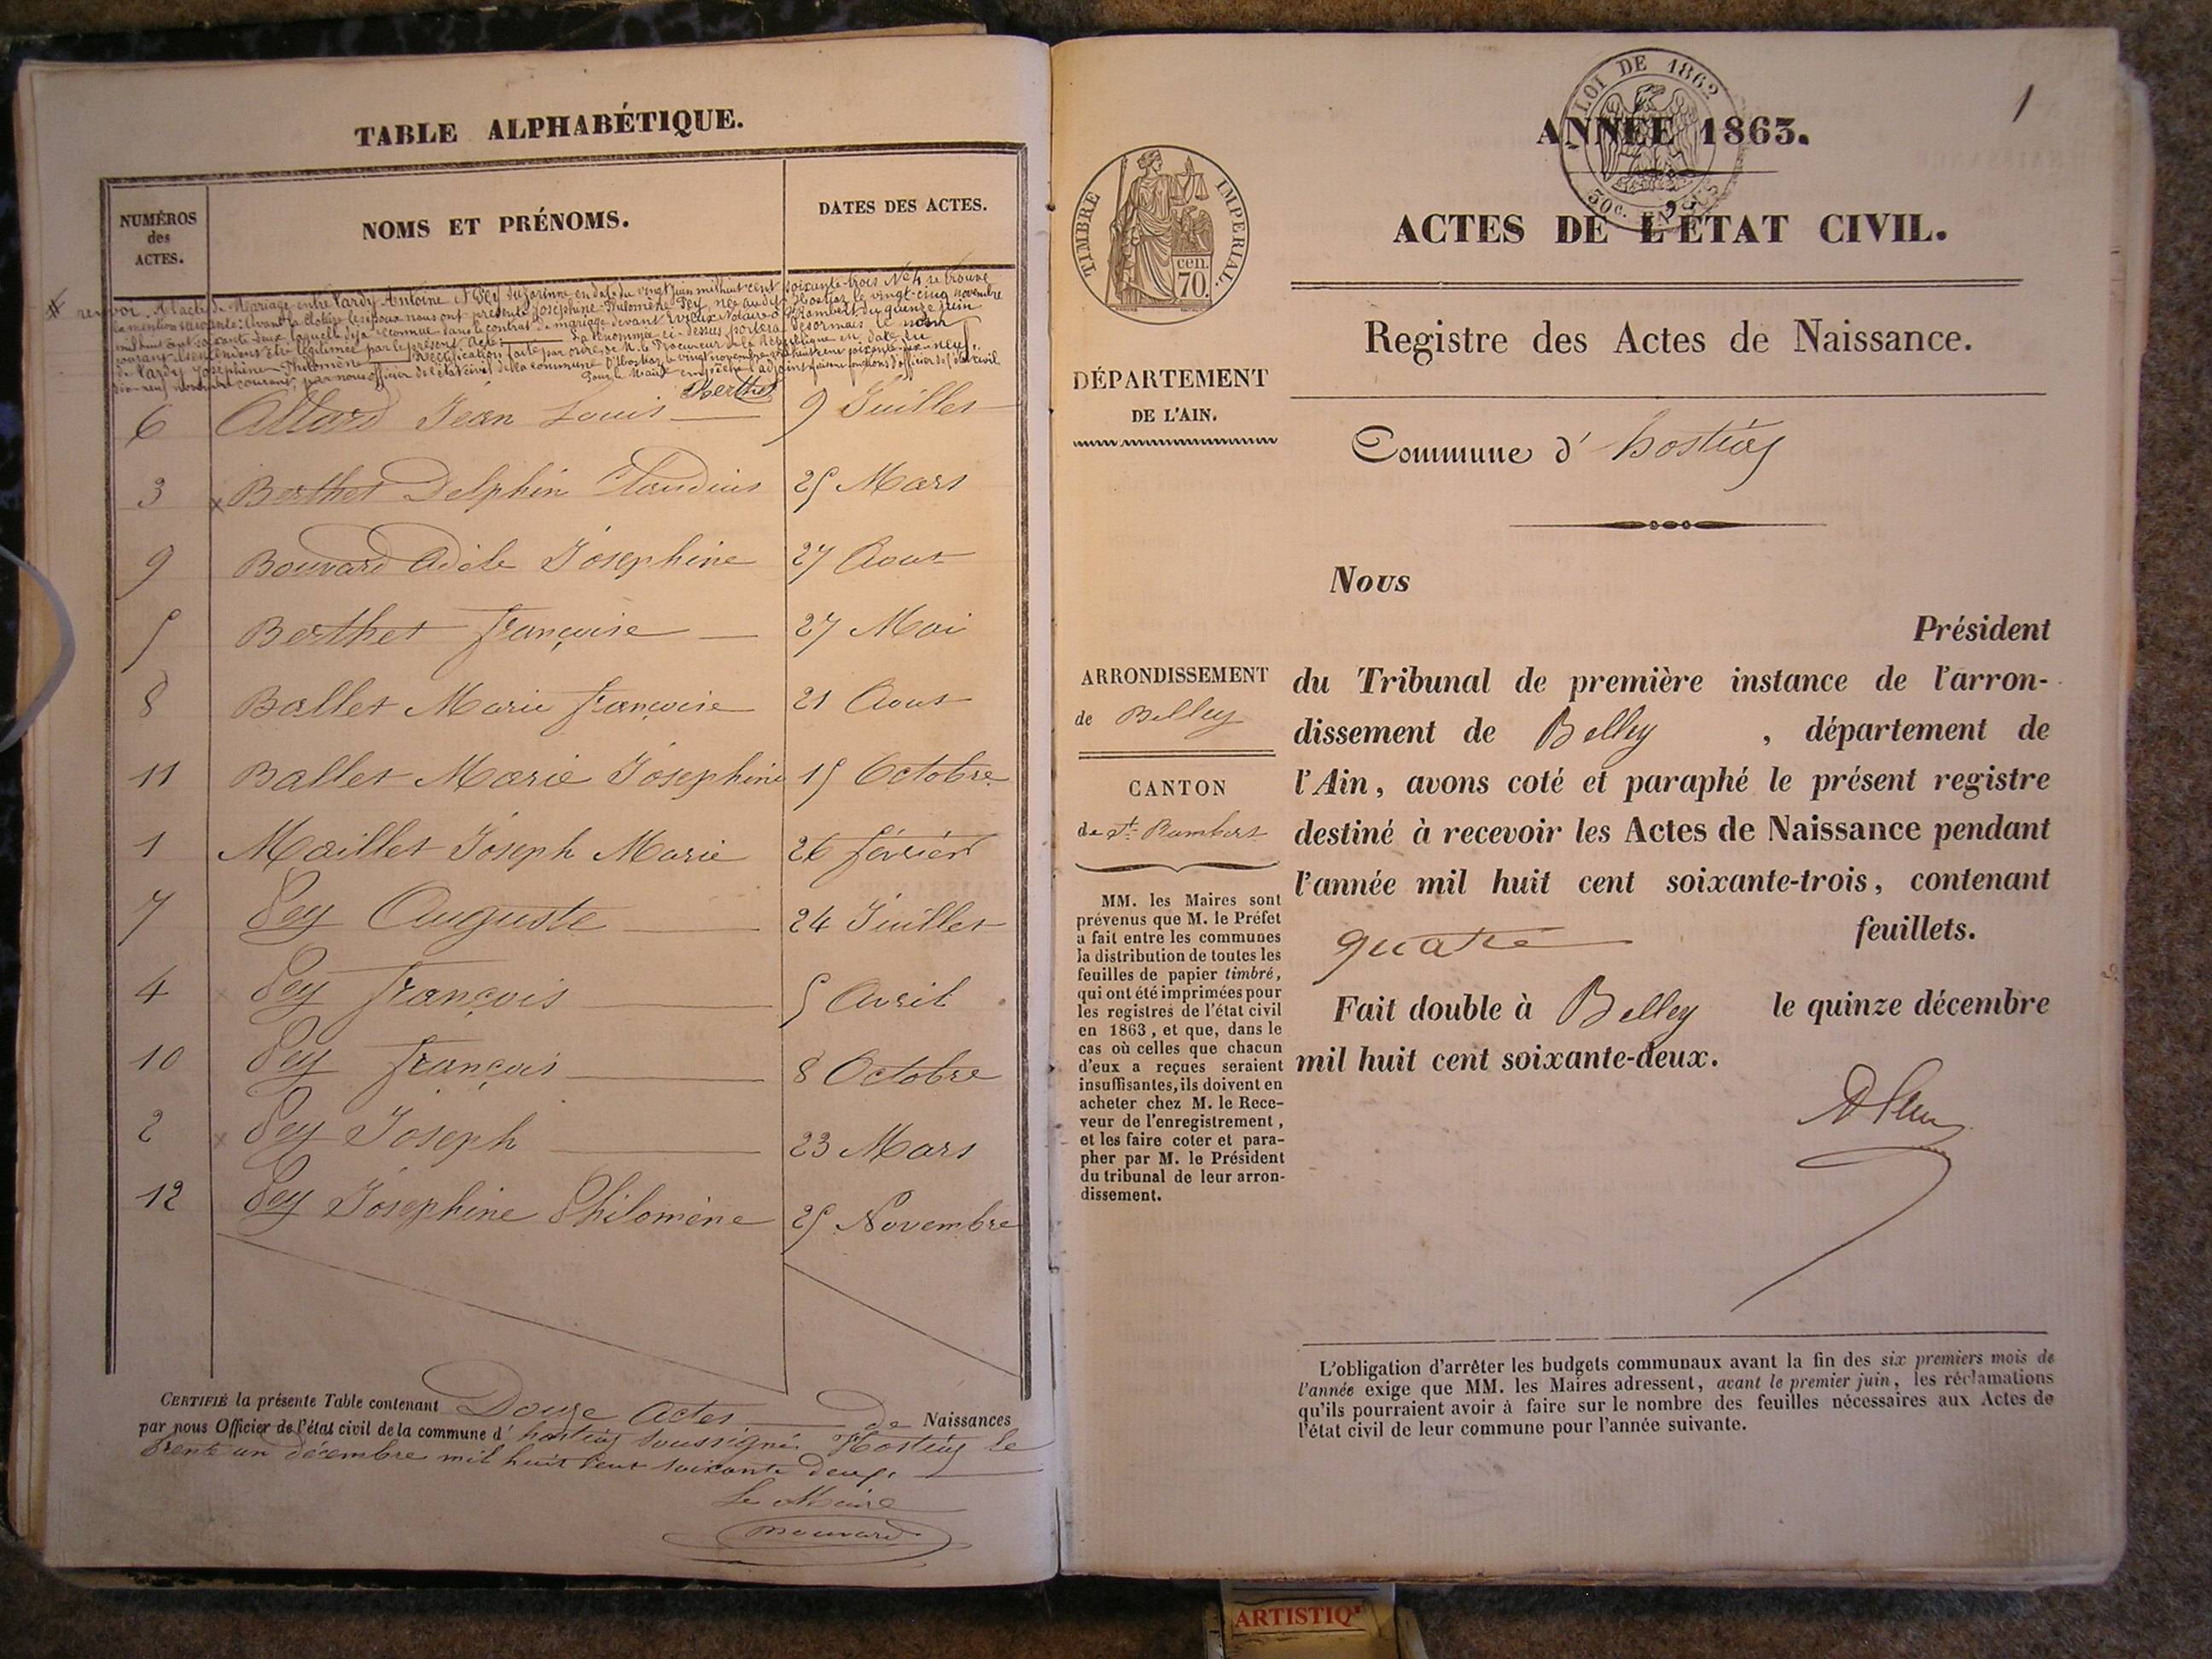 TABLE ALPHABÉTIQUE.
NUMÉROS des ACTES.
NOMS ET PRÉNOMS.
DATES DES ACTES.
renvoi. A l'acte de Mariage entre Vardy Antoine & Pey en date du vingt juin mil huit cent soixante-trois No 4 se trouve
la mention suivante: avant la clôture les époux nous ont présenté Joséphine Philomène Pey née au dit Hostiaz le vingt-cinq novembre
mil huit cent soixante deux laquelle déjà reconnue dans le contrat de mariage devant Notaire à St Rambert du quinze juin
courant, être légitimée par le présent acte. La nommée ci-dessus portera désormais le nom
de Vardy Joséphine Philomène Rectification faite par ordre de M. le Procureur de la République en date du
dix-neuf novembre courant, par nous officier de l'état civil de la commune d'hostiaz le vingt novembre mil huit cent soixante dix-neuf.
Pour le Maire empêché l'adjoint fonctions d'officier de l'état civil
Berthet
6 Allard Jean Louis 9 Juillet
3 Berthet Delphin Claudius 25 Mars
9 Bouvard Adèle Josephine 27 Aout
5 Berthet françoise 27 Mai
8 Ballet Marie françoise 21 Aout
11 Ballet Marie Josephine 15 Octobre
1 Maillet Joseph Marie 26 février
7 Pey Auguste 24 Juillet
4 Pey françois 5 Avril
10 Pey françois 8 Octobre
2 Pey Joseph 23 Mars
12 Pey Josephine Philomène 25 Novembre
CERTIFIÉ la présente Table contenant Douze Actes de Naissances
par nous Officier de l'état civil de la commune d' hostiaz soussigné. Hostiaz le
trente un décembre mil huit cent soixante deux.
Le Maire
Bouvard
1
LOI DE 1862
50c. EN SUS
ANNÉE 1863.
TIMBRE IMPERIAL
cen.
70.
ACTES DE L'ÉTAT CIVIL.
Registre des Actes de Naissance.
DÉPARTEMENT
DE L'AIN.
Commune d' hostiaz
Nous
Président
du Tribunal de première instance de l'arron-
dissement de Belley, département de
l'Ain, avons coté et paraphé le présent registre
destiné à recevoir les Actes de Naissance pendant
l'année mil huit cent soixante-trois, contenant
quatre feuillets.
Fait double à Belley le quinze décembre
mil huit cent soixante-deux.
ARRONDISSEMENT
de Belley
CANTON
de St Rambert
MM. les Maires sont
prévenus que M. le Préfet
a fait entre les communes
la distribution de toutes les
feuilles de papier timbré,
qui ont été imprimées pour
les registres de l'état civil
en 1863, et que, dans le
cas où celles que chacun
d'eux a reçues seraient
insuffisantes, ils doivent en
acheter chez M. le Rece-
veur de l'enregistrement,
et les faire coter et para-
pher par M. le Président
du tribunal de leur arron-
dissement.
L'obligation d'arrêter les budgets communaux avant la fin des six premiers mois de
l'année exige que MM. les Maires adressent, avant le premier juin, les réclamations
qu'ils pourraient avoir à faire sur le nombre des feuilles nécessaires aux Actes de
l'état civil de leur commune pour l'année suivante.
ARTISTIQ